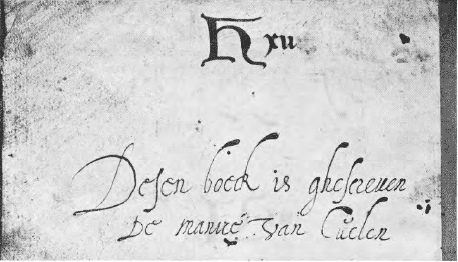 H xii
Desen boeck is ghescreuen
De manire van Cuelen